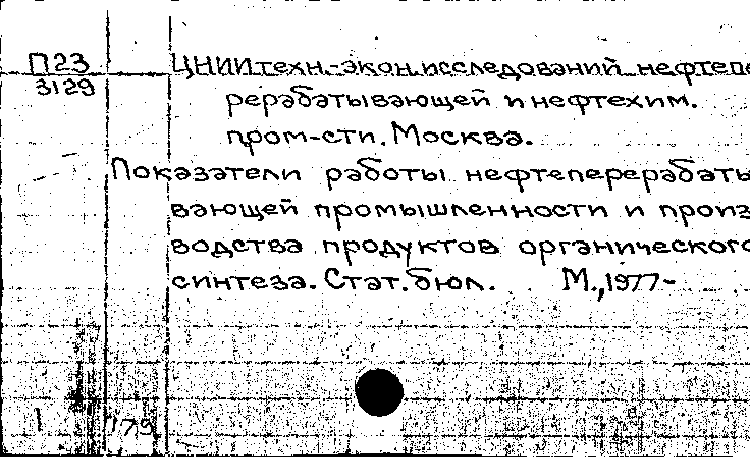 П23
3129
ЦНИИ техн.-экон. исследований нефтепе
рерабатывающей и нефтехим.
пром-сти. Москва.
Показатели работы нефтеперерабаты
вающей промышленности и произ
водства продуктов органического
синтеза. Стат. бюл. М., 1977-
1 179